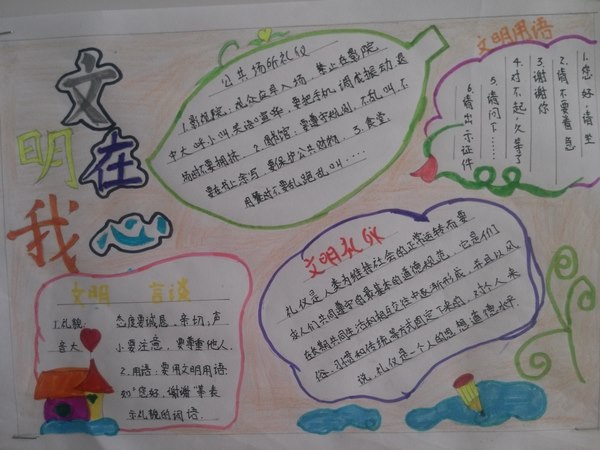 文明在我心
公共场所礼仪
1.影剧院:观众应早入场,禁止在影院
中大呼小叫,笑语喧华,要把手机调成振动,退
场时不要拥挤. 2.图书馆:要遵守规则,不乱叫,不
要在书上涂写,要保护公共财物. 3.食堂:
用餐时不要乱跑乱叫....
文明用语
1.您好,请坐
2.请不要着急
3.谢谢你
4.对不起,久等了
5.请问下......
6.请出示证件
文明言谈
1.礼貌:态度要诚恳、亲切;声
音大小要注意,更尊重他人
2.用语:要用文明用语.
如"您好,谢谢"等表
示礼貌的词语.
文明礼仪
礼仪是人类为维持社会的正常运转而要
求人们共同遵守的最基本的道德规范,它是人们
在长期共同生活和相互交往中逐渐形成,并且以风
俗、习惯和传统等方式固定下来的,对个人来
说,礼仪是一个人的思想道德水平.